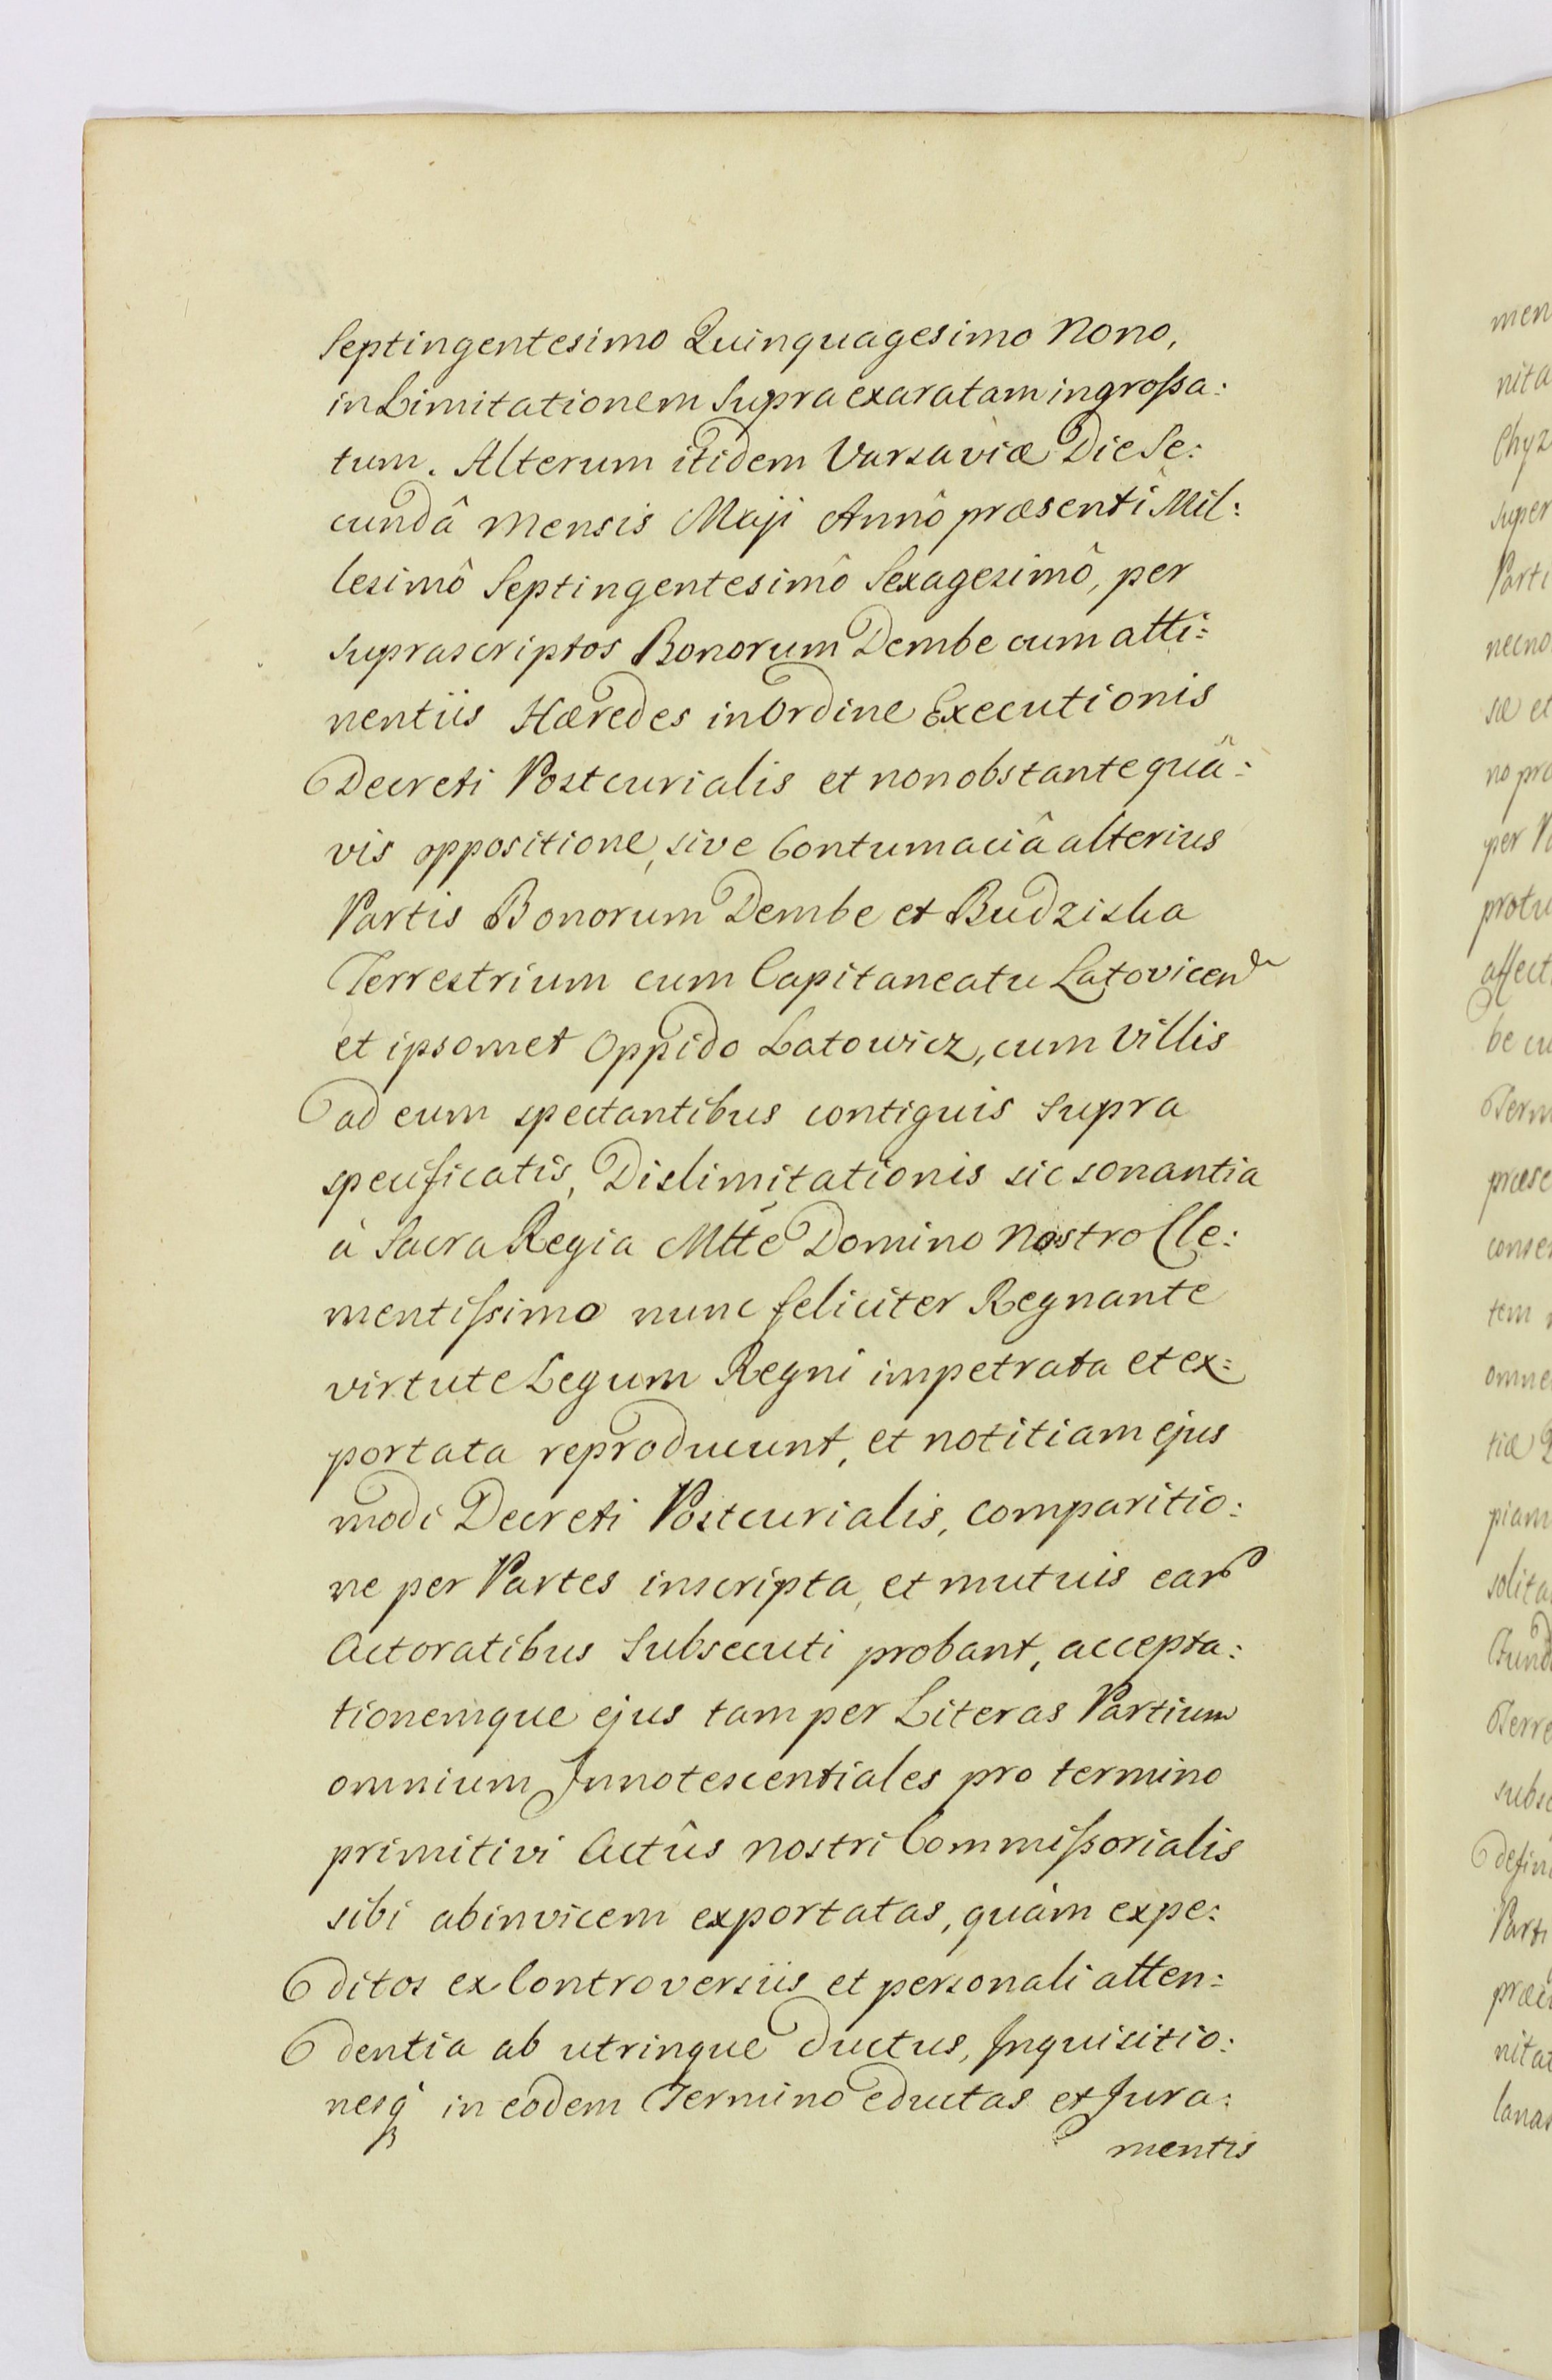 Septingentesimo Quinquagesimo Nono,
in Limitationem Supra exaratam ingrossa:
tum. Alterum itidem Varsaviæ Die Se:
cundâ Mensis Maji Annô præsenti Mil:
lesimô Septingentesimô Sexagesimô, per
suprascriptos Bonorum Dembe cum atti:
nentiis Hæredes in Ordine Executionis
Decreti Postcurialis et nonobstante quâ:
vis oppositione, sive Contumaciâ alterius
Partis Bonorum Dembe et Budziska
Terrestrium cum Capitaneatu Latovicen
et ipsomet Oppido Latowicz, cum Villis
ad eum spectantibus contiguis supra
specificatis, Dislimitationis sic sonantia
à Sacra Regia Mtte Domino Nostro Cle:
mentissimo nunc feliciter Regnante
virtute Legum Regni impetrata et ex:
portata reproducunt, et notitiam ejus
modi Decreti Postcurialis, comparitio:
ne per Partes inscripta, et mutuis ear
Actoratibus Subsecuti probant, accepta:
tionemque ejus tam per Literas Partium
omnium Innotescentiales pro termino
primitivi Actûs nostri Commissorialis
sibi abinvicem exportatas, quàm expe:
ditos ex Controversiis et personali atten:
dentia ab utrinque ductus, Inquisitio:
nesq in eodem Termino eductas et Jura:
mentis
men
nita
Chyz
super
Parti
necno
sæ et
no pro
per
protu
affect
be cu
Term
præse
conse
tem
omne
tiæ
piam
solita
Fund
Terre
subse
defin
Parti
præ
nitat
lanas